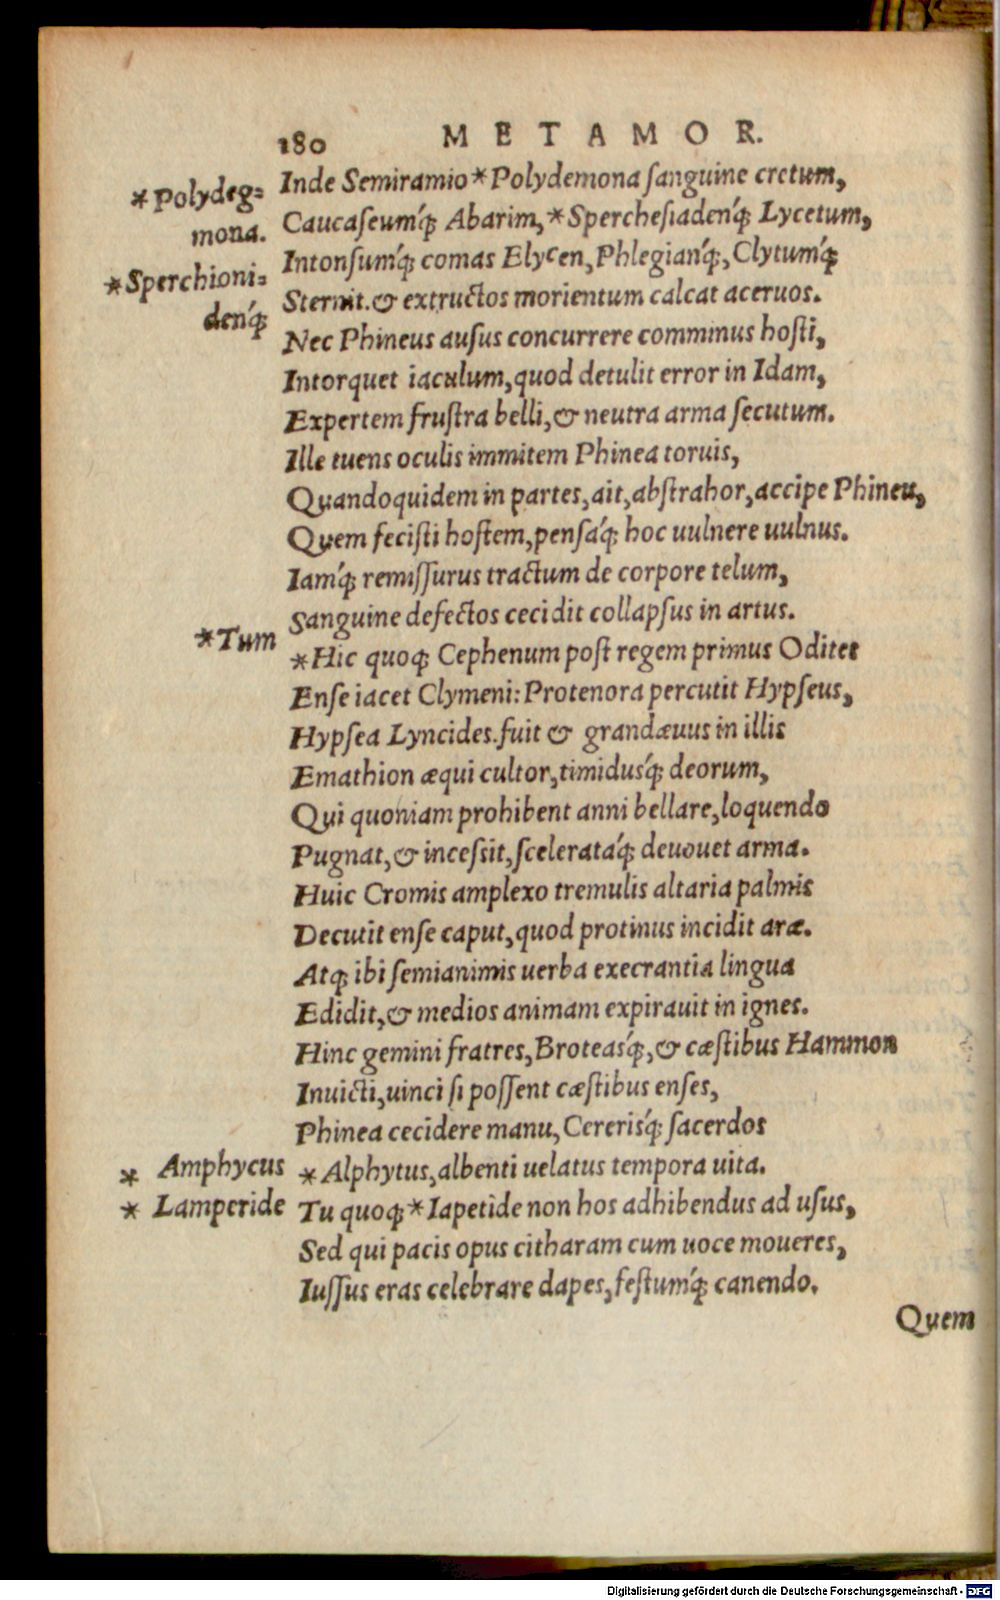 180 METAMOR.
*Polydeg=
mona.
*Sperchioni=
denq́ꝫ
Inde Semiramio *Polydemona ſanguine cretum,
Caucaſeumq́ꝫ Abarim, *Spercheſiadenq́ꝫ Lycetum,
Intonſumq́ꝫ comas Elycen, Phlegianq́ꝫ, Clytumq́ꝫ
Sternit. & extructos morientum calcat aceruos.
Nec Phineus auſus concurrere comminus hoſti,
Intorquet iaculum, quod detulit error in Idam,
Expertem fruſtra belli, & neutra arma ſecutum.
Ille tuens oculis immitem Phinea toruis,
Quandoquidem in partes, ait, abſtrahor, accipe Phineu,
Quem feciſti hoſtem, penſaq́ꝫ hoc uulnere uulnus.
Iamq́ꝫ remiſſurus tractum de corpore telum,
Sanguine defectos cecidit collapſus in artus.
*Tum
*Hic quoqꝫ Cephenum poſt regem primus Odites
Enſe iacet Clymeni: Protenora percutit Hypſeus,
Hypſea Lyncides. fuit & grandæuus in illis
Emathion æqui cultor, timidusq́ꝫ deorum,
Qui quoniam prohibent anni bellare, loquendo
Pugnat, & inceſsit, ſcelerataq́ꝫ deuouet arma.
Huic Cromis amplexo tremulis altaria palmis
Decutit enſe caput, quod protinus incidit aræ.
Atqꝫ ibi ſemianimis uerba execrantia lingua
Edidit, & medios animam expirauit in ignes.
Hinc gemini fratres, Broteasq́ꝫ, & cæſtibus Hammon
Inuicti, uinci ſi poſſent cæſtibus enſes,
Phinea cecidere manu, Cererisq́ꝫ ſacerdos
* Amphycus
*Alphytus, albenti uelatus tempora uita.
* Lamperide
Tu quoqꝫ *Iapetide non hos adhibendus ad uſus,
Sed qui pacis opus citharam cum uoce moueres,
Iuſſus eras celebrare dapes, feſtumq́ꝫ canendo.
Quem
Digitalisierung gefördert durch die Deutsche Forschungsgemeinschaft - DFG